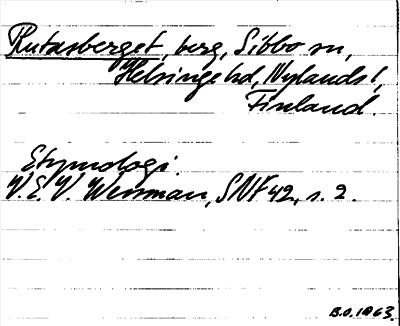 Rutasberget, berg, Sibbo sn,
Helsinge hd, Nylands l,
Finland.
Etymologi.
V.E.V. Wessman, SNF 42, s. 2.
B.O. 1963.